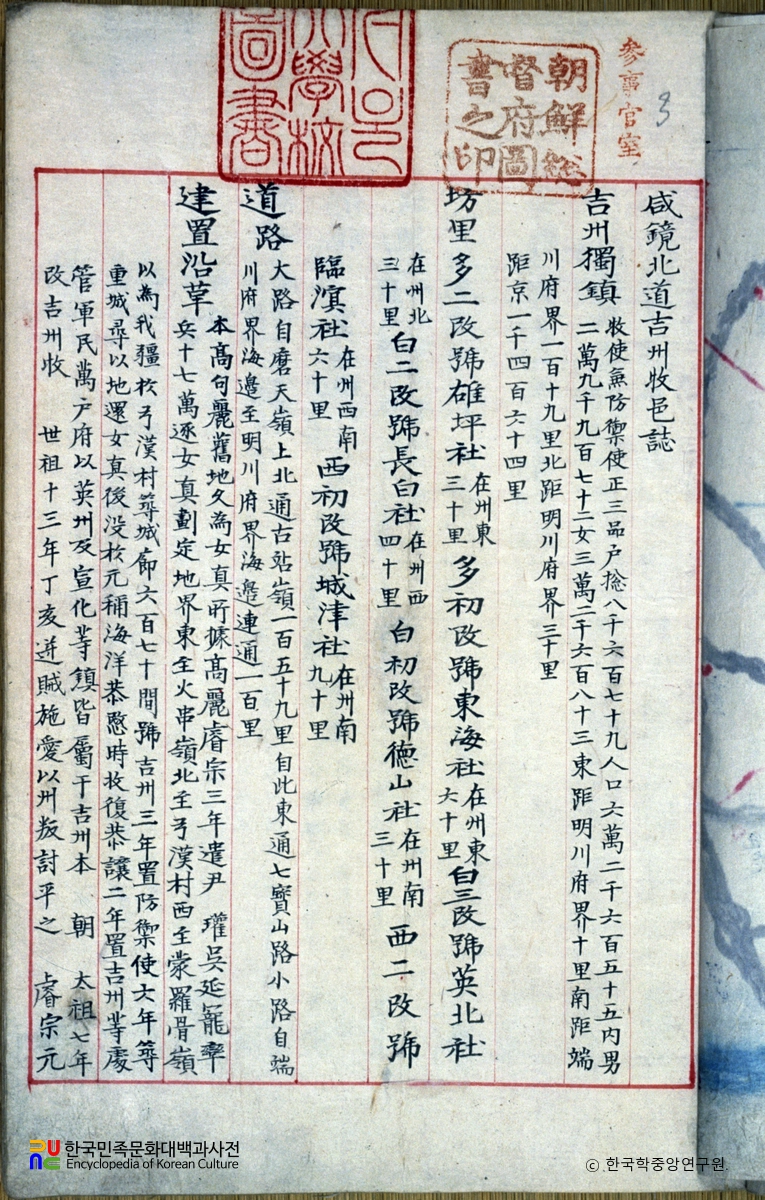 參事官室
3
朝鮮總
督府圖
書之印
大學校
圖書
咸鏡北道吉州牧邑誌
吉州獨鎮 牧使兼防禦使正三品戶摠八千六百七十九人口六萬二千六百五十五內男
二萬九千九百七十二女三萬二千六百八十三東距明川府界十里南距端
川府界一百十九里北距明川府界三十里
距京一千四百六十四里
坊里 多二改號雄坪社 在州東三十里 多初改號東海社 在州東六十里 白三改號英北社
在州北三十里 白二改號長白社 在州西四十里 白初改號德山社 在州南三十里 西二改號
臨溟社 在州西南六十里 西初改號城津社 在州南九十里
道路 大路自磨天嶺上北通古站嶺一百五十九里自此東通七寶山路小路自端
川府界海邊至明川府界海邊連通一百里
建置沿革 本髙句麗舊地久為女真所據髙麗睿宗三年遣尹 瓘吳延寵率
兵十七萬逐女真劃定地界東至火串嶺北至弓漢村西至蒙羅骨嶺
以為我疆於弓漢村築城廊六百七十間號吉州三年置防禦使六年築
重城尋以地還女真後没於元稱海洋恭愍時收復恭讓二年置吉州等處
管軍民萬戶府以英州及宣化等鎮皆屬于吉州本 朝 太祖七年
改吉州牧 世祖十三年丁亥逆賊施愛以州叛討平之 睿宗元
한국민족문화대백과사전
Encyclopedia of Korean Culture
ⓒ 한국학중앙연구원